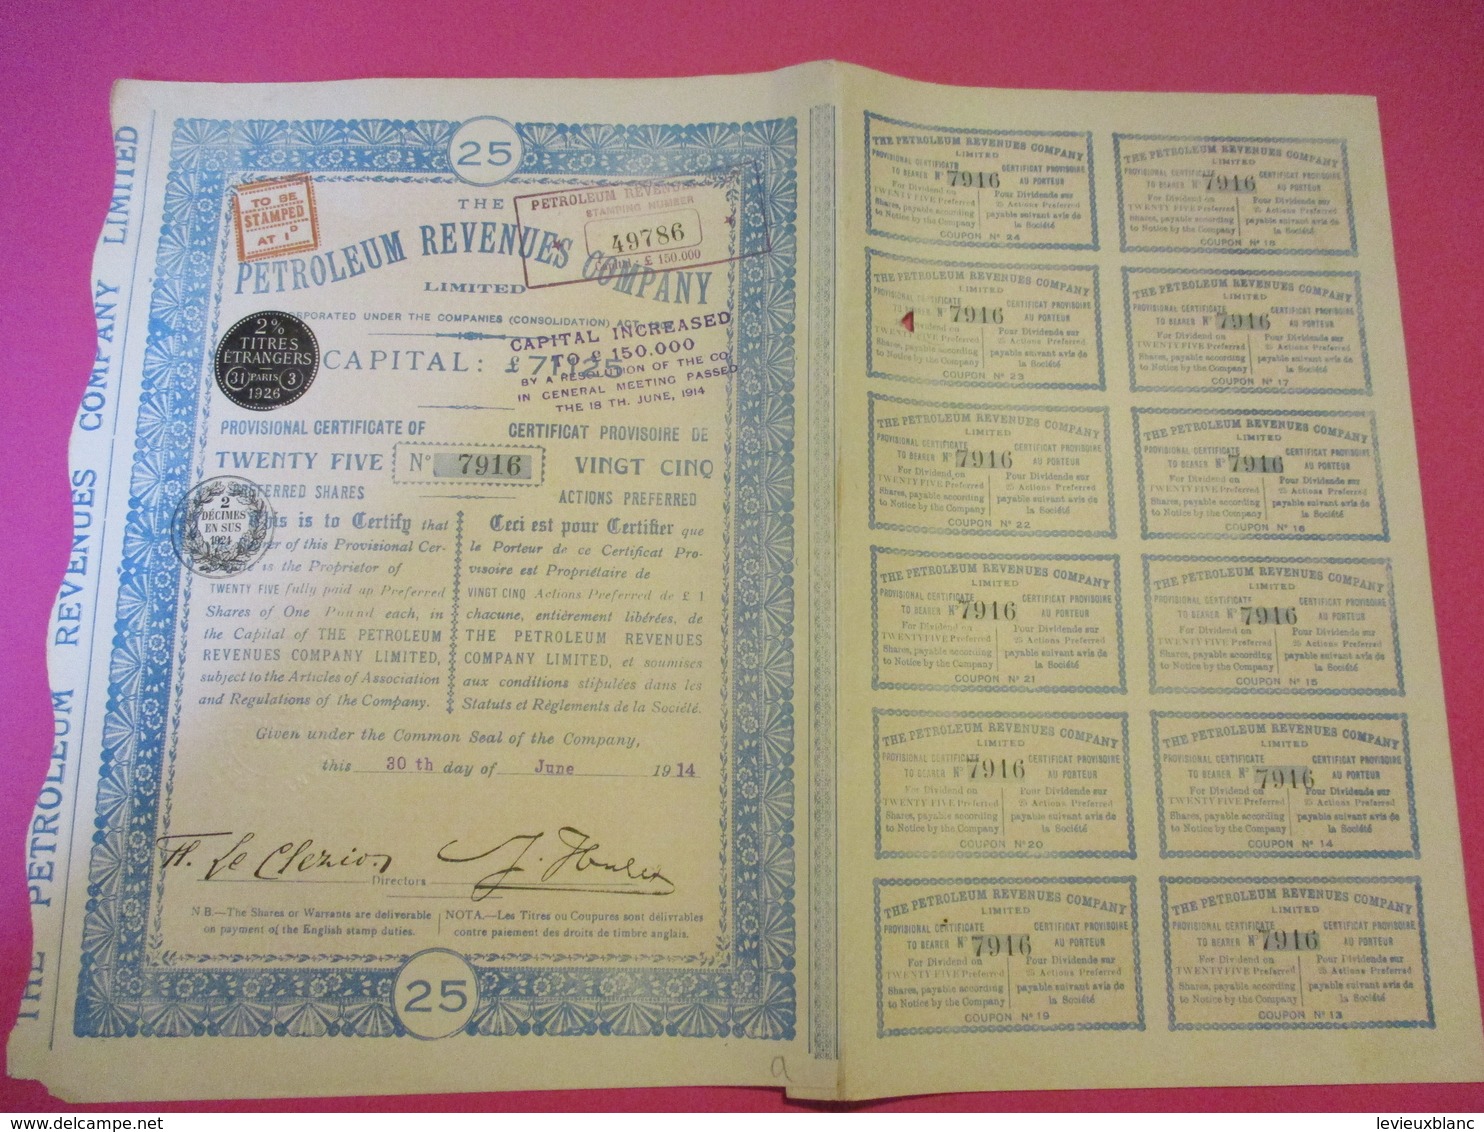 THE PETROLEUM REVENUES COMPANY LIMITED
25
TO BE
STAMPED
AT 1D
THE
PETROLEUM REVENUES COMPANY
LIMITED
PETROLEUM REVENUES
STAMPING NUMBER
49786
£ 150.000
INCORPORATED UNDER THE COMPANIES (CONSOLIDATION) ACT
2%
TITRES
ÉTRANGERS
31 PARIS 3
1926
CAPITAL: £ 71,125
CAPITAL INCREASED
TO £ 150.000
BY A RESOLUTION OF THE CO
IN GENERAL MEETING PASSED
THE 18 TH. JUNE, 1914
PROVISIONAL CERTIFICATE OF
TWENTY FIVE
PREFERRED SHARES
No 7916
CERTIFICAT PROVISOIRE DE
VINGT CINQ
ACTIONS PREFERRED
2
DÉCIMES
EN SUS
1921
This is to Certify that
Bearer of this Provisional Cer-
is the Proprietor of
TWENTY FIVE fully paid up Preferred
Shares of One Pound each, in
the Capital of THE PETROLEUM
REVENUES COMPANY LIMITED,
subject to the Articles of Association
and Regulations of the Company.
Ceci est pour Certifier que
le Porteur de ce Certificat Pro-
visoire est Propriétaire de
VINGT CINQ Actions Preferred de £ 1
chacune, entièrement libérées, de
THE PETROLEUM REVENUES
COMPANY LIMITED, et soumises
aux conditions stipulées dans les
Statuts et Règlements de la Société.
Given under the Common Seal of the Company,
this 30 th day of June 1914
H. Le Clezio
Directors
N B.—The Shares or Warrants are deliverable
on payment of the English stamp duties.
NOTA.—Les Titres ou Coupures sont délivrables
contre paiement des droits de timbre anglais.
25
THE PETROLEUM REVENUES COMPANY
LIMITED
PROVISIONAL CERTIFICATE
TO BEARER No 7916
For Dividend on
TWENTY FIVE Preferred
Shares, payable according
to Notice by the Company
CERTIFICAT PROVISOIRE
AU PORTEUR
Pour Dividende sur
25 Actions Preferred
payable suivant avis de
la Société
COUPON No 24
THE PETROLEUM REVENUES COMPANY
LIMITED
PROVISIONAL CERTIFICATE
TO BEARER No 7916
For Dividend on
TWENTY FIVE Preferred
Shares, payable according
to Notice by the Company
CERTIFICAT PROVISOIRE
AU PORTEUR
Pour Dividende sur
25 Actions Preferred
payable suivant avis de
la Société
COUPON No 18
THE PETROLEUM REVENUES COMPANY
LIMITED
PROVISIONAL CERTIFICATE
TO BEARER No 7916
Dividend on
TWENTY FIVE Preferred
Shares, payable according
to Notice by the Company
CERTIFICAT PROVISOIRE
AU PORTEUR
Pour Dividende sur
25 Actions Preferred
payable suivant avis de
la Société
COUPON No 23
THE PETROLEUM REVENUES COMPANY
LIMITED
PROVISIONAL CERTIFICATE
TO BEARER No 7916
For Dividend on
TWENTY FIVE Preferred
Shares, payable according
to Notice by the Company
CERTIFICAT PROVISOIRE
AU PORTEUR
Pour Dividende sur
25 Actions Preferred
payable suivant avis de
la Société
COUPON No 17
THE PETROLEUM REVENUES COMPANY
LIMITED
PROVISIONAL CERTIFICATE
TO BEARER No 7916
For Dividend on
TWENTY FIVE Preferred
Shares, payable according
to Notice by the Company
CERTIFICAT PROVISOIRE
AU PORTEUR
Pour Dividende sur
25 Actions Preferred
payable suivant avis de
la Société
COUPON No 22
THE PETROLEUM REVENUES COMPANY
LIMITED
PROVISIONAL CERTIFICATE
TO BEARER No 7916
For Dividend on
TWENTY FIVE Preferred
Shares, payable according
to Notice by the Company
CERTIFICAT PROVISOIRE
AU PORTEUR
Pour Dividende sur
25 Actions Preferred
payable suivant avis de
la Société
COUPON No 16
THE PETROLEUM REVENUES COMPANY
LIMITED
PROVISIONAL CERTIFICATE
TO BEARER No 7916
For Dividend on
TWENTY FIVE Preferred
Shares, payable according
to Notice by the Company
CERTIFICAT PROVISOIRE
AU PORTEUR
Pour Dividende sur
25 Actions Preferred
payable suivant avis de
la Société
COUPON No 21
THE PETROLEUM REVENUES COMPANY
LIMITED
PROVISIONAL CERTIFICATE
TO BEARER No 7916
For Dividend on
TWENTY FIVE Preferred
Shares, payable according
to Notice by the Company
CERTIFICAT PROVISOIRE
AU PORTEUR
Pour Dividende sur
25 Actions Preferred
payable suivant avis de
la Société
COUPON No 15
THE PETROLEUM REVENUES COMPANY
LIMITED
PROVISIONAL CERTIFICATE
TO BEARER No 7916
For Dividend on
TWENTY FIVE Preferred
Shares, payable according
to Notice by the Company
CERTIFICAT PROVISOIRE
AU PORTEUR
Pour Dividende sur
25 Actions Preferred
payable suivant avis de
la Société
COUPON No 20
THE PETROLEUM REVENUES COMPANY
LIMITED
PROVISIONAL CERTIFICATE
TO BEARER No 7916
For Dividend on
TWENTY FIVE Preferred
Shares, payable according
to Notice by the Company
CERTIFICAT PROVISOIRE
AU PORTEUR
Pour Dividende sur
25 Actions Preferred
payable suivant avis de
la Société
COUPON No 14
THE PETROLEUM REVENUES COMPANY
LIMITED
PROVISIONAL CERTIFICATE
TO BEARER No 7916
For Dividend on
TWENTY FIVE Preferred
Shares, payable according
to Notice by the Company
CERTIFICAT PROVISOIRE
AU PORTEUR
Pour Dividende sur
25 Actions Preferred
payable suivant avis de
la Société
COUPON No 19
THE PETROLEUM REVENUES COMPANY
LIMITED
PROVISIONAL CERTIFICATE
TO BEARER No 7916
For Dividend on
TWENTY FIVE Preferred
Shares, payable according
to Notice by the Company
CERTIFICAT PROVISOIRE
AU PORTEUR
Pour Dividende sur
25 Actions Preferred
payable suivant avis de
la Société
COUPON No 13
a
levieuxblanc